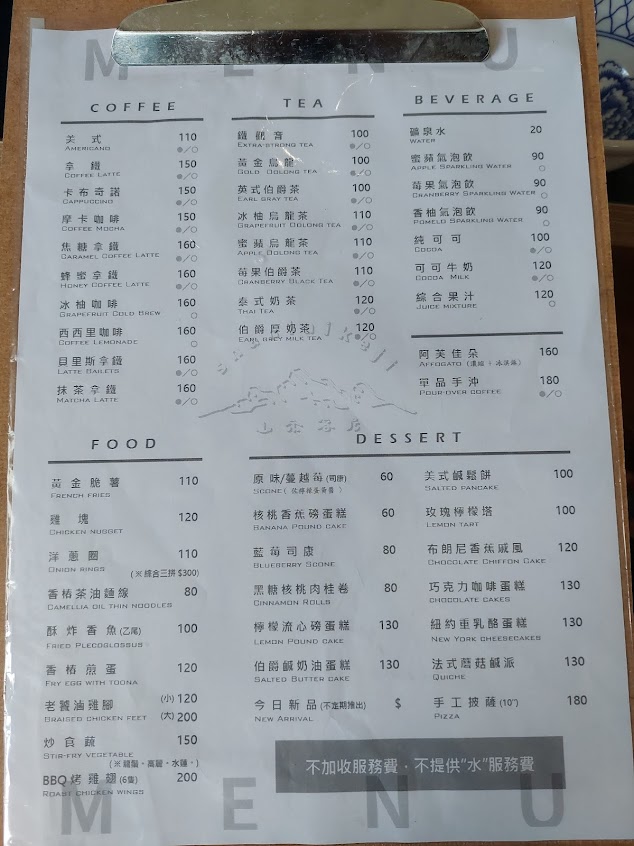 MENU
COFFEE
美式 110
AMERICANO ●/○
拿鐵 150
COFFEE LATTE ●/○
卡布奇諾 150
CAPPUCCINO ●/○
摩卡咖啡 150
COFFEE MOCHA ●/○
焦糖拿鐵 160
CARAMEL COFFEE LATTE ●/○
蜂蜜拿鐵 160
HONEY COFFEE LATTE ●/○
冰柚咖啡 160
GRAPEFRUIT COLD BREW ○
西西里咖啡 160
COFFEE LEMONADE ○
貝里斯拿鐵 160
LATTE BAILETS ●/○
抹茶拿鐵 160
MATCHA LATTE ●/○
TEA
鐵觀音 100
EXTRA-STRONG TEA ●/○
黃金烏龍 100
GOLD OOLONG TEA ●/○
英式伯爵茶 100
EARL GRAY TEA ●/○
冰柚烏龍茶 110
GRAPEFRUIT OOLONG TEA ●/○
蜜蘋烏龍茶 110
APPLE OOLONG TEA ●/○
莓果伯爵茶 110
CRANBERRY BLACK TEA ●/○
泰式奶茶 120
THAI TEA ●/○
伯爵厚奶茶 120
EARL GREY MILK TEA ●/○
BEVERAGE
礦泉水 20
WATER
蜜蘋氣泡飲 90
APPLE SPARKLING WATER ○
莓果氣泡飲 90
CRANBERRY SPARKLING WATER ○
香柚氣泡飲 90
POMELO SPARKLING WATER ○
純可可 100
COCOA ●/○
可可牛奶 120
COCOA MILK ●/○
綜合果汁 120
JUICE MIXTURE ○
阿芙佳朵 160
AFFOGATO (濃縮+冰淇淋)
單品手沖 180
POUR-OVER COFFEE ●/○
FOOD
黃金脆薯 110
FRENCH FRIES
雞塊 120
CHICKEN NUGGET
洋蔥圈 110
ONION RINGS (※綜合三拼 $300)
香椿茶油麵線 80
CAMELLIA OIL THIN NOODLES
酥炸香魚(乙尾) 100
FRIED PLECOGLOSSUS
香椿煎蛋 120
FRY EGG WITH TOONA
老饕滷雞腳 (小) 120
BRAISED CHICKEN FEET (大) 200
炒時蔬 150
STIR-FRY VEGETABLE
(※龍鬚、高麗、水蓮。)
BBQ烤雞翅(6隻) 200
ROAST CHICKEN WINGS
DESSERT
原味/蔓越莓(司康) 60
SCONE
核桃香蕉磅蛋糕 60
BANANA POUND CAKE
藍莓司康 80
BLUEBERRY SCONE
黑糖核桃肉桂卷 80
CINNAMON ROLLS
檸檬流心磅蛋糕 130
LEMON POUND CAKE
伯爵鹹奶油蛋糕 130
SALTED BUTTER CAKE
今日新品(不定期推出) $
NEW ARRIVAL
美式鹹鬆餅 100
SALTED PANCAKE
玫瑰檸檬塔 100
LEMON TART
布朗尼香蕉戚風 120
CHOCOLATE CHIFFON CAKE
巧克力咖啡蛋糕 130
CHOCOLATE CAKES
紐約重乳酪蛋糕 130
NEW YORK CHEESECAKES
法式蘑菇鹹派 130
QUICHE
手工披薩(10") 180
PIZZA
不加收服務費、不提供“水”服務費
MENU